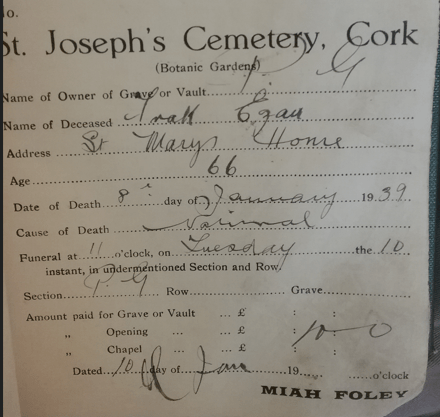 No.
St. Joseph's Cemetery, Cork
(Botanic Gardens) P G
Name of Owner of Grave or Vault
Name of Deceased Egan
Address St Marys Home
Age 66
Date of Death 8th day of January 1939
Cause of Death
Funeral at 11 o'clock, on Tuesday the 10
instant, in undermentioned Section and Row
Section P G Row Grave
Amount paid for Grave or Vault ... £ : :
„ Opening ... ... £ : 10 - 0
„ Chapel ... ... £ : :
Dated 10 day of Jan 19 o'clock
MIAH FOLEY